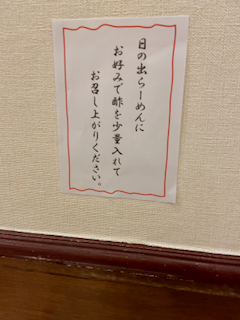 日の出らーめんに
お好みで酢を少量入れて
お召し上がりください。